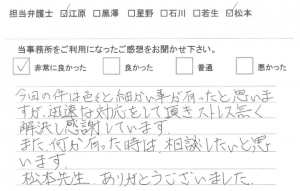 担当弁護士 ☑江原 □黒澤 □星野 □石川 □若生 ☑松本
当事務所をご利用になったご感想をお聞かせ下さい。
☑ 非常に良かった □ 良かった □ 普通 □ 悪かった
今回の件は色々と細かい事が有ったと思いま
すが、迅速な対応をして頂きストレス無く
解決し感謝しています。
また、何か有った時は、相談したいと思
います。
松本先生、ありがとうございました。